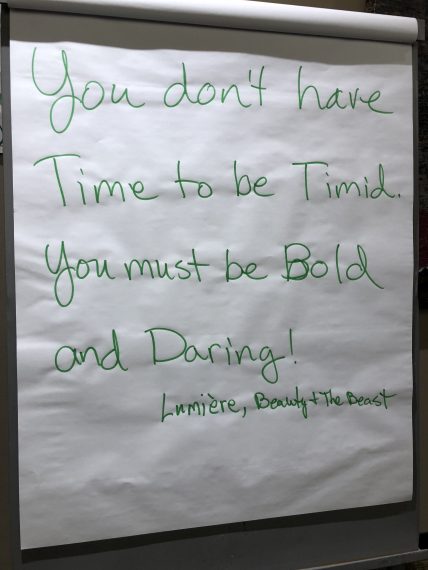 You don't have
Time to be Timid.
You must be Bold
and Daring!
Lumière, Beauty + The Beast